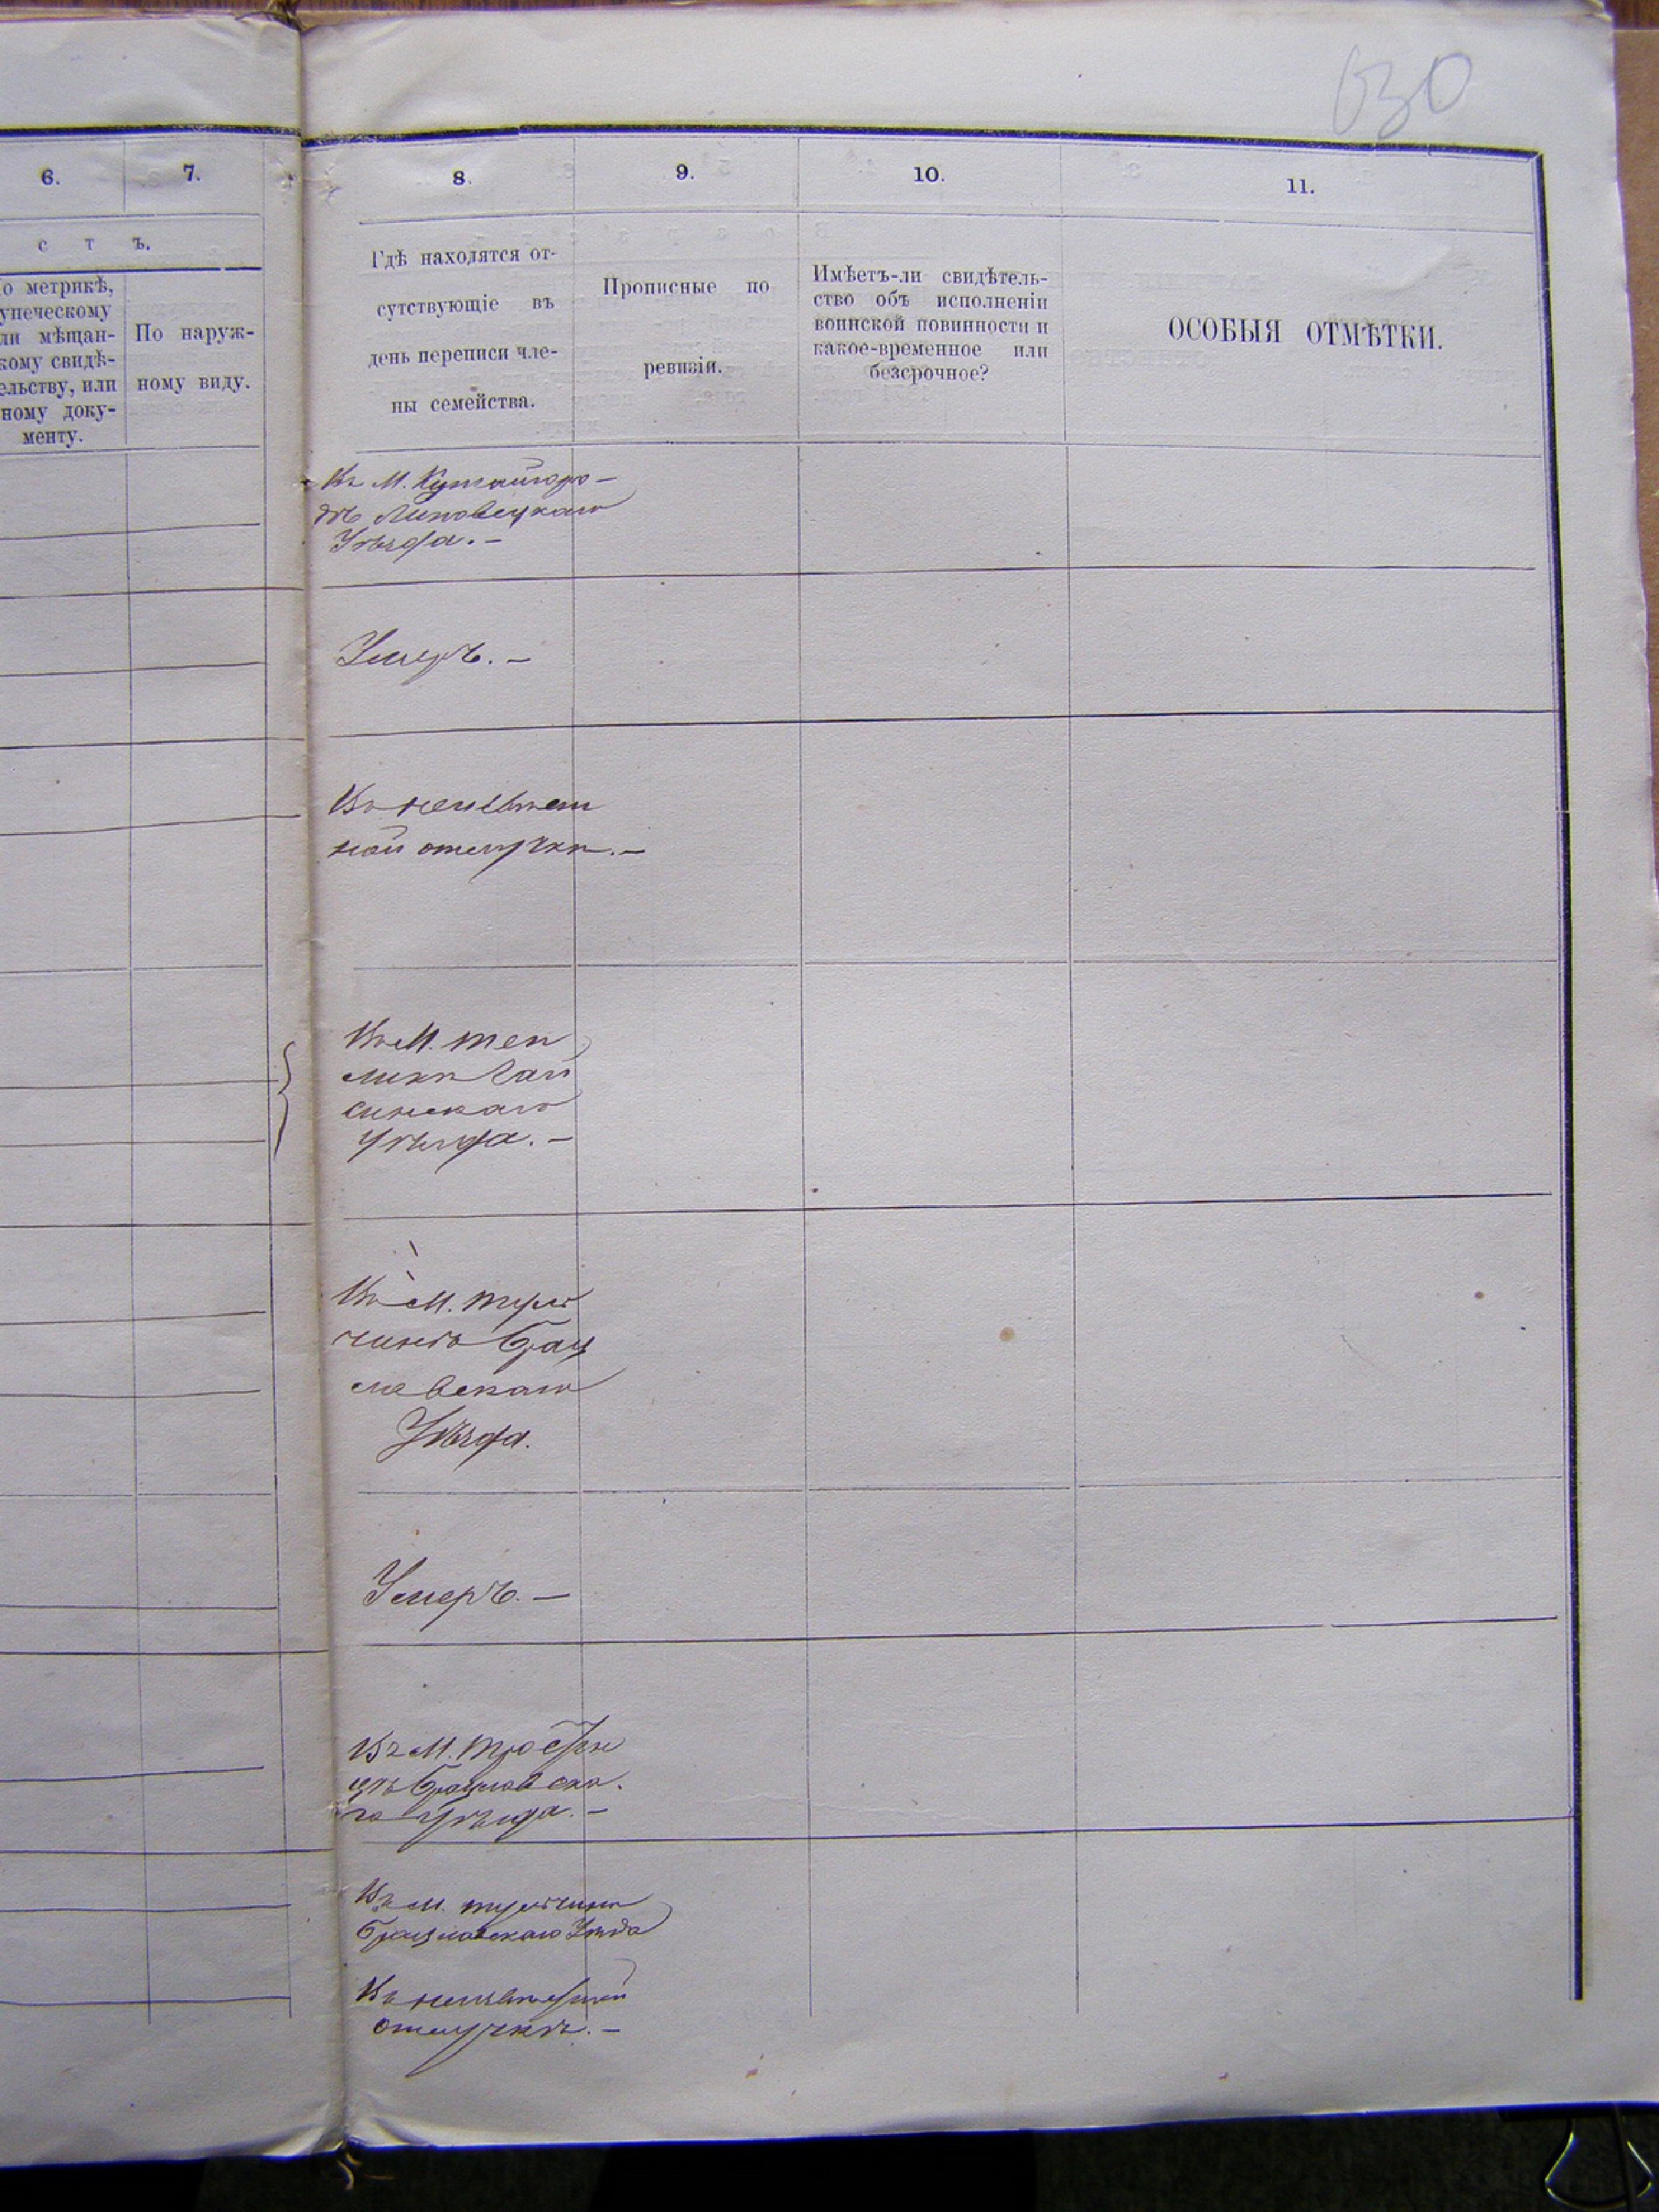 630
6.
7.
8.
9.
10.
11.
с т ъ.
о метрикѣ,
упеческому
ли мѣщан-
кому свидѣ-
ельству, или
ному доку-
менту.
По наруж-
ному виду.
Гдѣ находятся от-
сутствующіе въ
день переписи чле-
ны семейства.
Прописные по
ревизіи.
Имѣетъ-ли свидѣтель-
ство объ исполненіи
воинской повинности и
какое-временное или
безсрочное?
ОСОБЫЯ ОТМѢТКИ.
Въ М. Китайгоро-
дѣ Липовецкаго
Уѣзда. –
Умеръ. –
Въ неизвѣст
ной отлучкѣ. –
Въ М. Теп
ликѣ Гай
синскаго
уѣзда. –
Въ М. Туль
чинѣ Брац
лавскаго
Уѣзда.
Умеръ. –
Въ М. Тростян
цѣ Брацлавска
го уѣзда. –
Въ М. Тульчинѣ
Брацлавскаго Уѣзда
Въ неизвѣстной
отлучкѣ. –